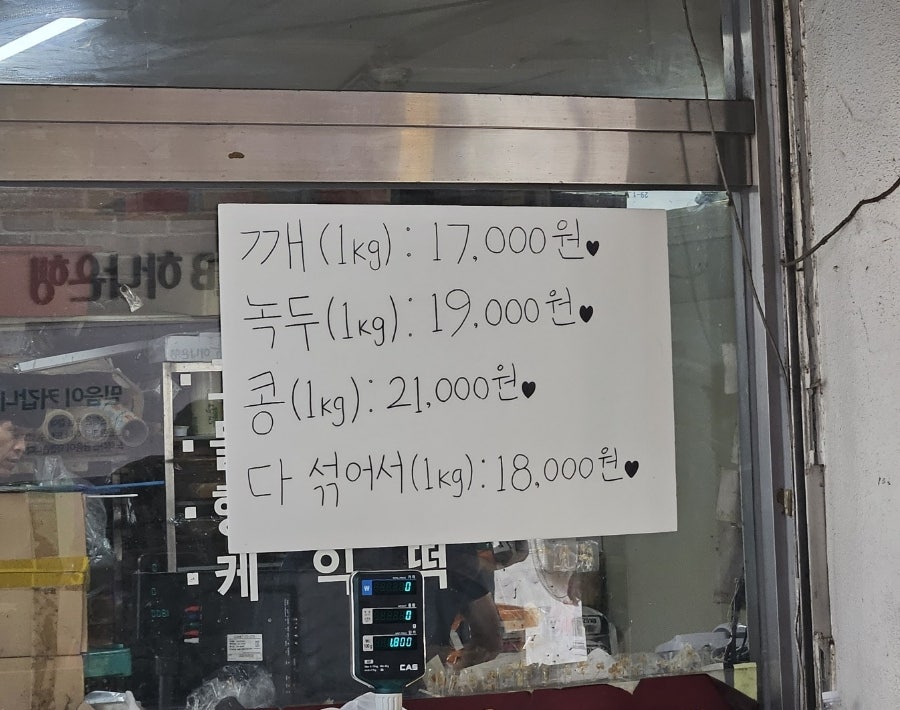 깨(1kg): 17,000원♥
녹두(1kg): 19,000원♥
콩(1kg): 21,000원♥
다 섞어서(1kg): 18,000원♥
하나은행
믿음이 커갑니
케익떡
0
0
1,800
CAS